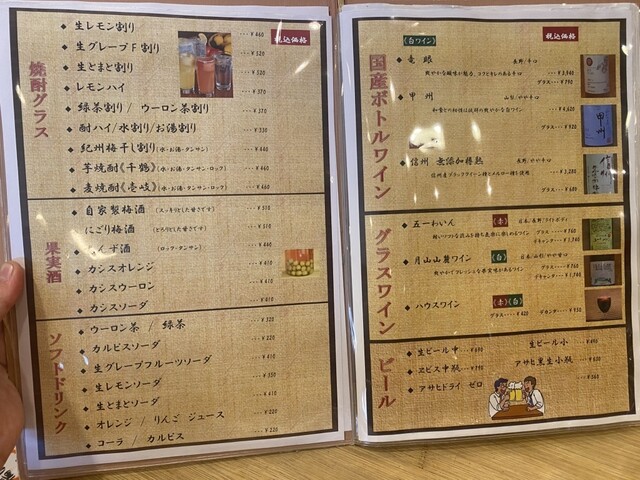 税込価格
焼酎グラス
◆ 生レモン割り ・・・¥460
◆ 生グレープF割り ・・・¥520
◆ 生とまと割り ・・・¥520
◆ レモンハイ ・・・¥370
◆ 緑茶割り / ウーロン茶割り ・・・¥370
◆ 酎ハイ/水割り/お湯割り ・・・¥330
◆ 紀州梅干し割り(水・お湯・タンサン) ・・・¥440
◆ 芋焼酎《千鶴》(水・お湯・タンサン・ロック) ・・・¥460
◆ 麦焼酎《壱岐》(水・お湯・タンサン・ロック) ・・・¥460
果実酒
◆ 自家製梅酒 (スッキリとした甘さです) ・・・¥510
◆ にごり梅酒 (とろりとした甘さです) ・・・¥510
あんず酒 (ロック・タンサン) ¥460
◆ カシスオレンジ ・・・¥410
◆ カシスウーロン ・・・¥410
◆ カシスソーダ ・・・¥410
ソフトドリンク
◆ ウーロン茶 / 緑茶 ・・・¥220
◆ カルピスソーダ ・・・¥220
◆ 生グレープフルーツソーダ ・・・¥410
◆ 生レモンソーダ ・・・¥350
◆ 生とまとソーダ ・・・¥410
◆ オレンジ / りんご ジュース ・・・¥220
◆ コーラ / カルピス ・・・¥220
税込価格
国産ボトルワイン
《白ワイン》
◆ 竜眼 長野/辛口
グラス
◆ 甲州 山梨/やや辛口
・・・¥4,620
グラス ・・・¥920
甲州
◆ 信州 無添加樽熟 長野/やや辛口
・・・¥3,280
グラス ・・・¥680
グラスワイン
◆ 五一わいん 《赤》 日本/長野/ライトボディ
グラス
デキャンタ
◆ 月山山麓ワイン 《白》 日本/山形/やや甘口
グラス ・・・¥760
デキャンタ
◆ ハウスワイン 《赤》《白》
グラス・・・¥420 デキャンタ・・・¥950
ビール
◆ 生ビール中・・・¥690 生ビール小
◆ エビス中瓶・・・¥790 アサヒ黒生小瓶
◆ アサヒドライ ゼロ